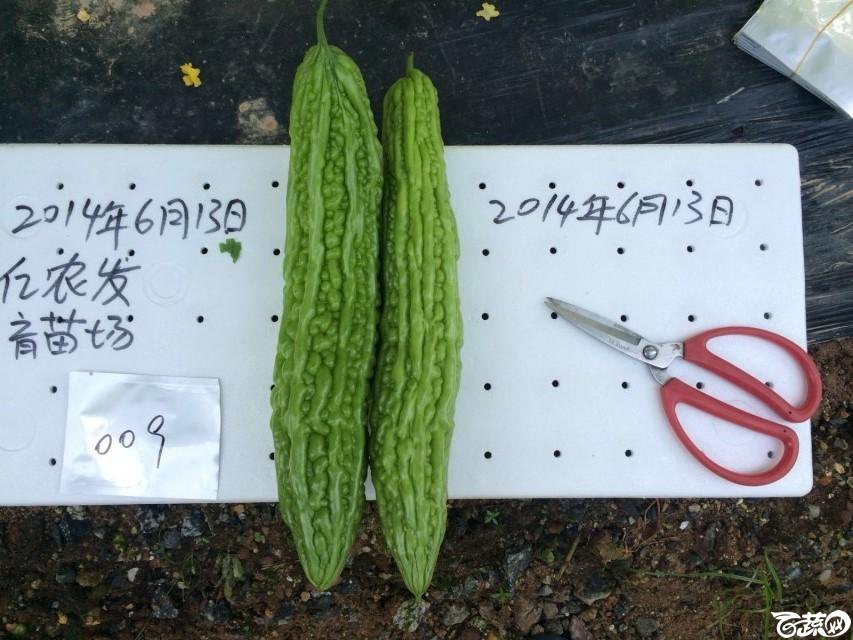 2014年6月13日
亿农发
育苗场
009
2014年6月13日
百蔬网